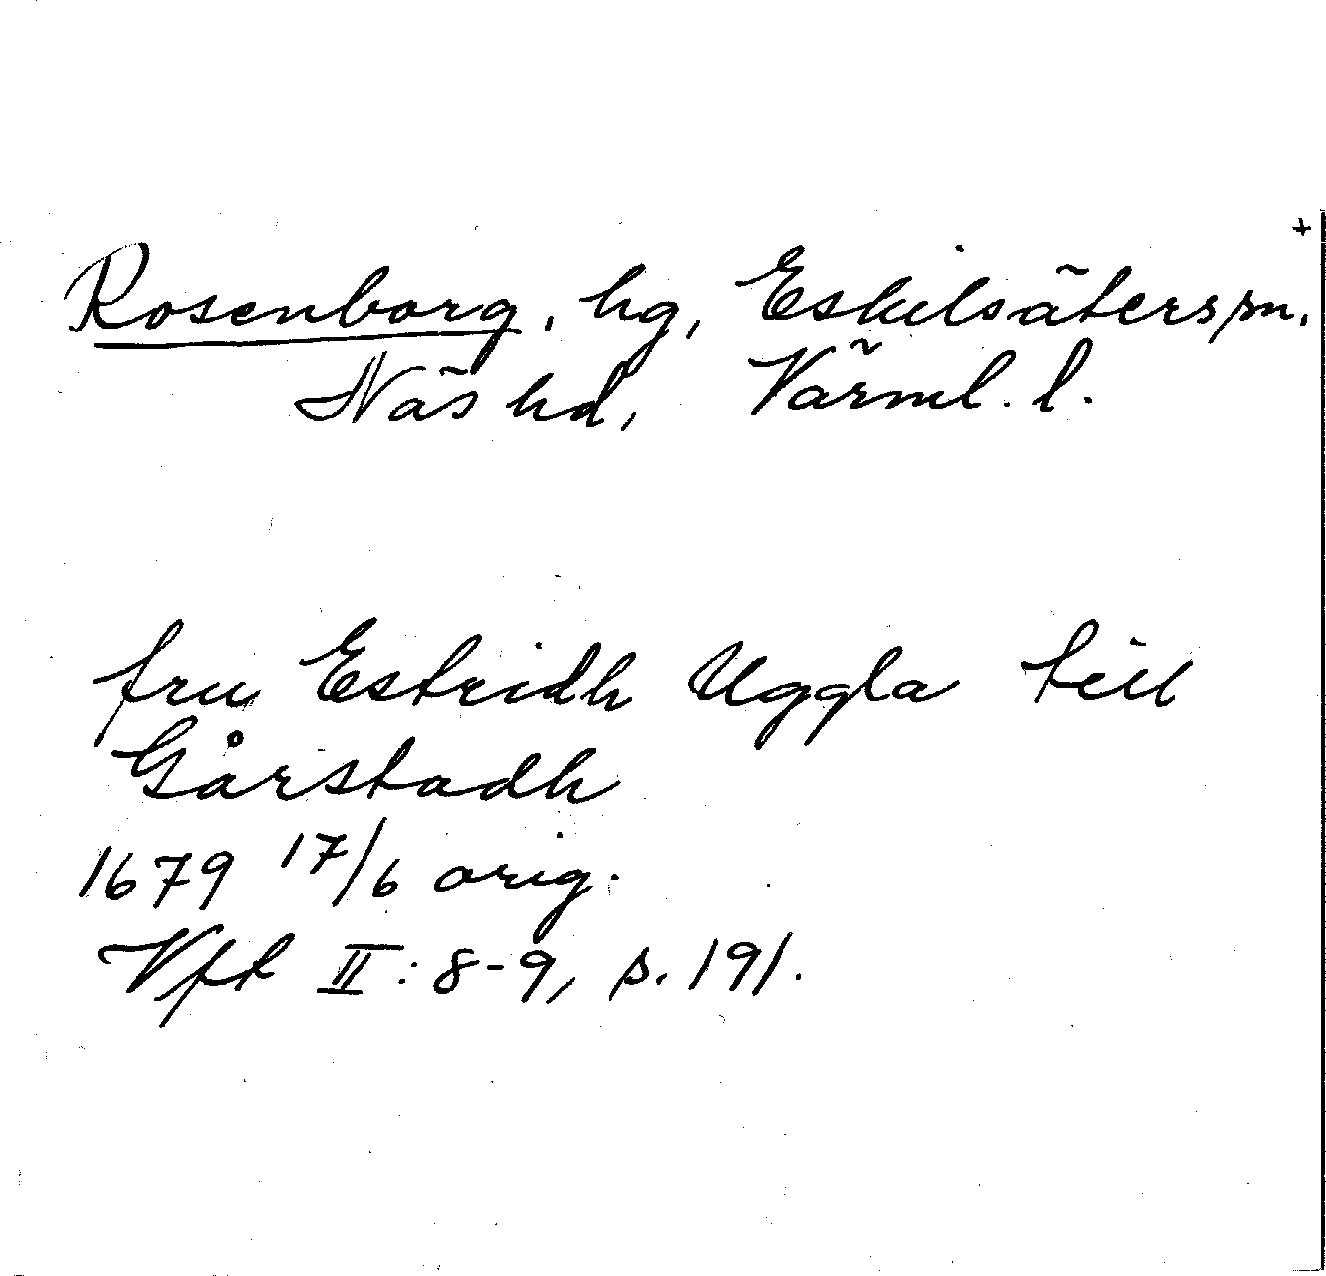 +
Rosenborg, hg, Eskilsäters sn.
Näs hd, Värml. l.
fru Estridh Uggla till
Gårstadh
1679 17/6 orig.
Vft II: 8-9, s. 191.